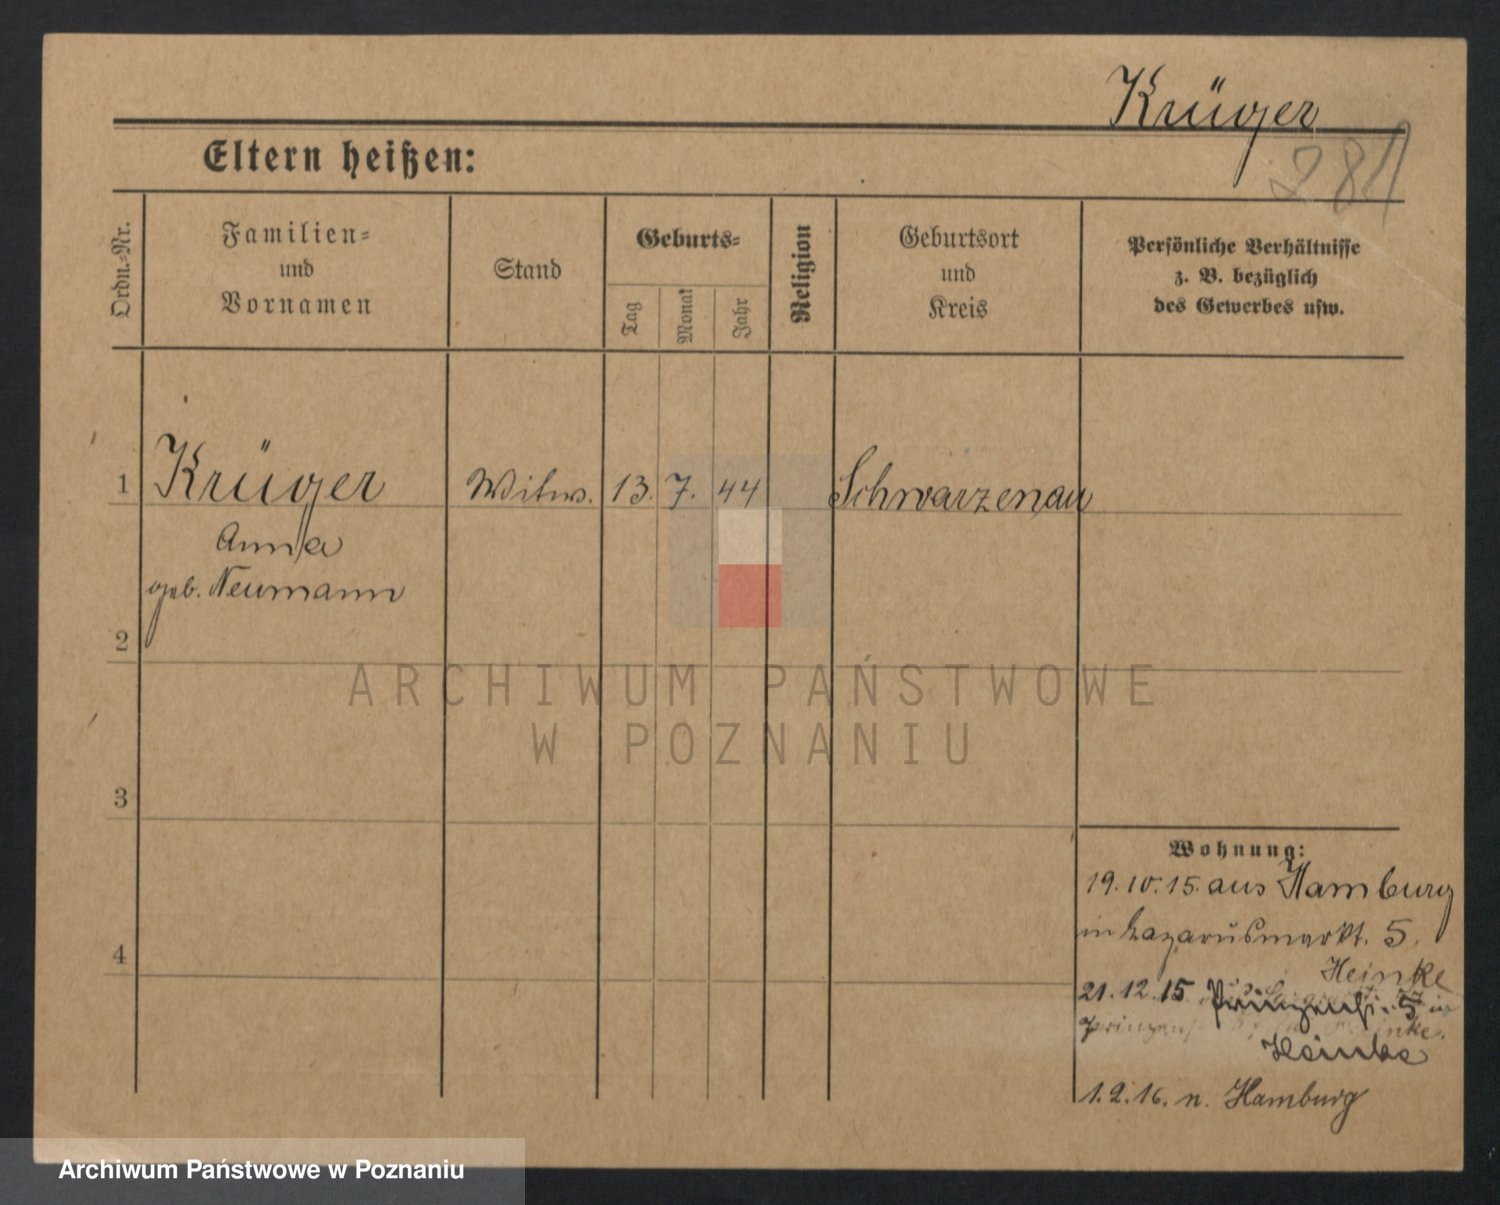 Krüger
284
Eltern heißen:
Ordn.-Nr.
Familien-
und
Vornamen
Stand
Geburts-
Tag
Monat
Jahr
Religion
Geburtsort
und
Kreis
Persönliche Verhältnisse
z. B. bezüglich
des Gewerbes usw.
1 Krüger Witw. 13. 7. 44 Schwarzenau
Anna
geb. Neumann
2
3
4
Wohnung:
19.10.15. aus Hamburg
in Lazarusmarkt. 5.
Heinke
21.12.15 Prinzenst. 5
Heinke
1.2.16. n. Hamburg
ARCHIWUM PAŃSTWOWE
W POZNANIU
Archiwum Państwowe w Poznaniu